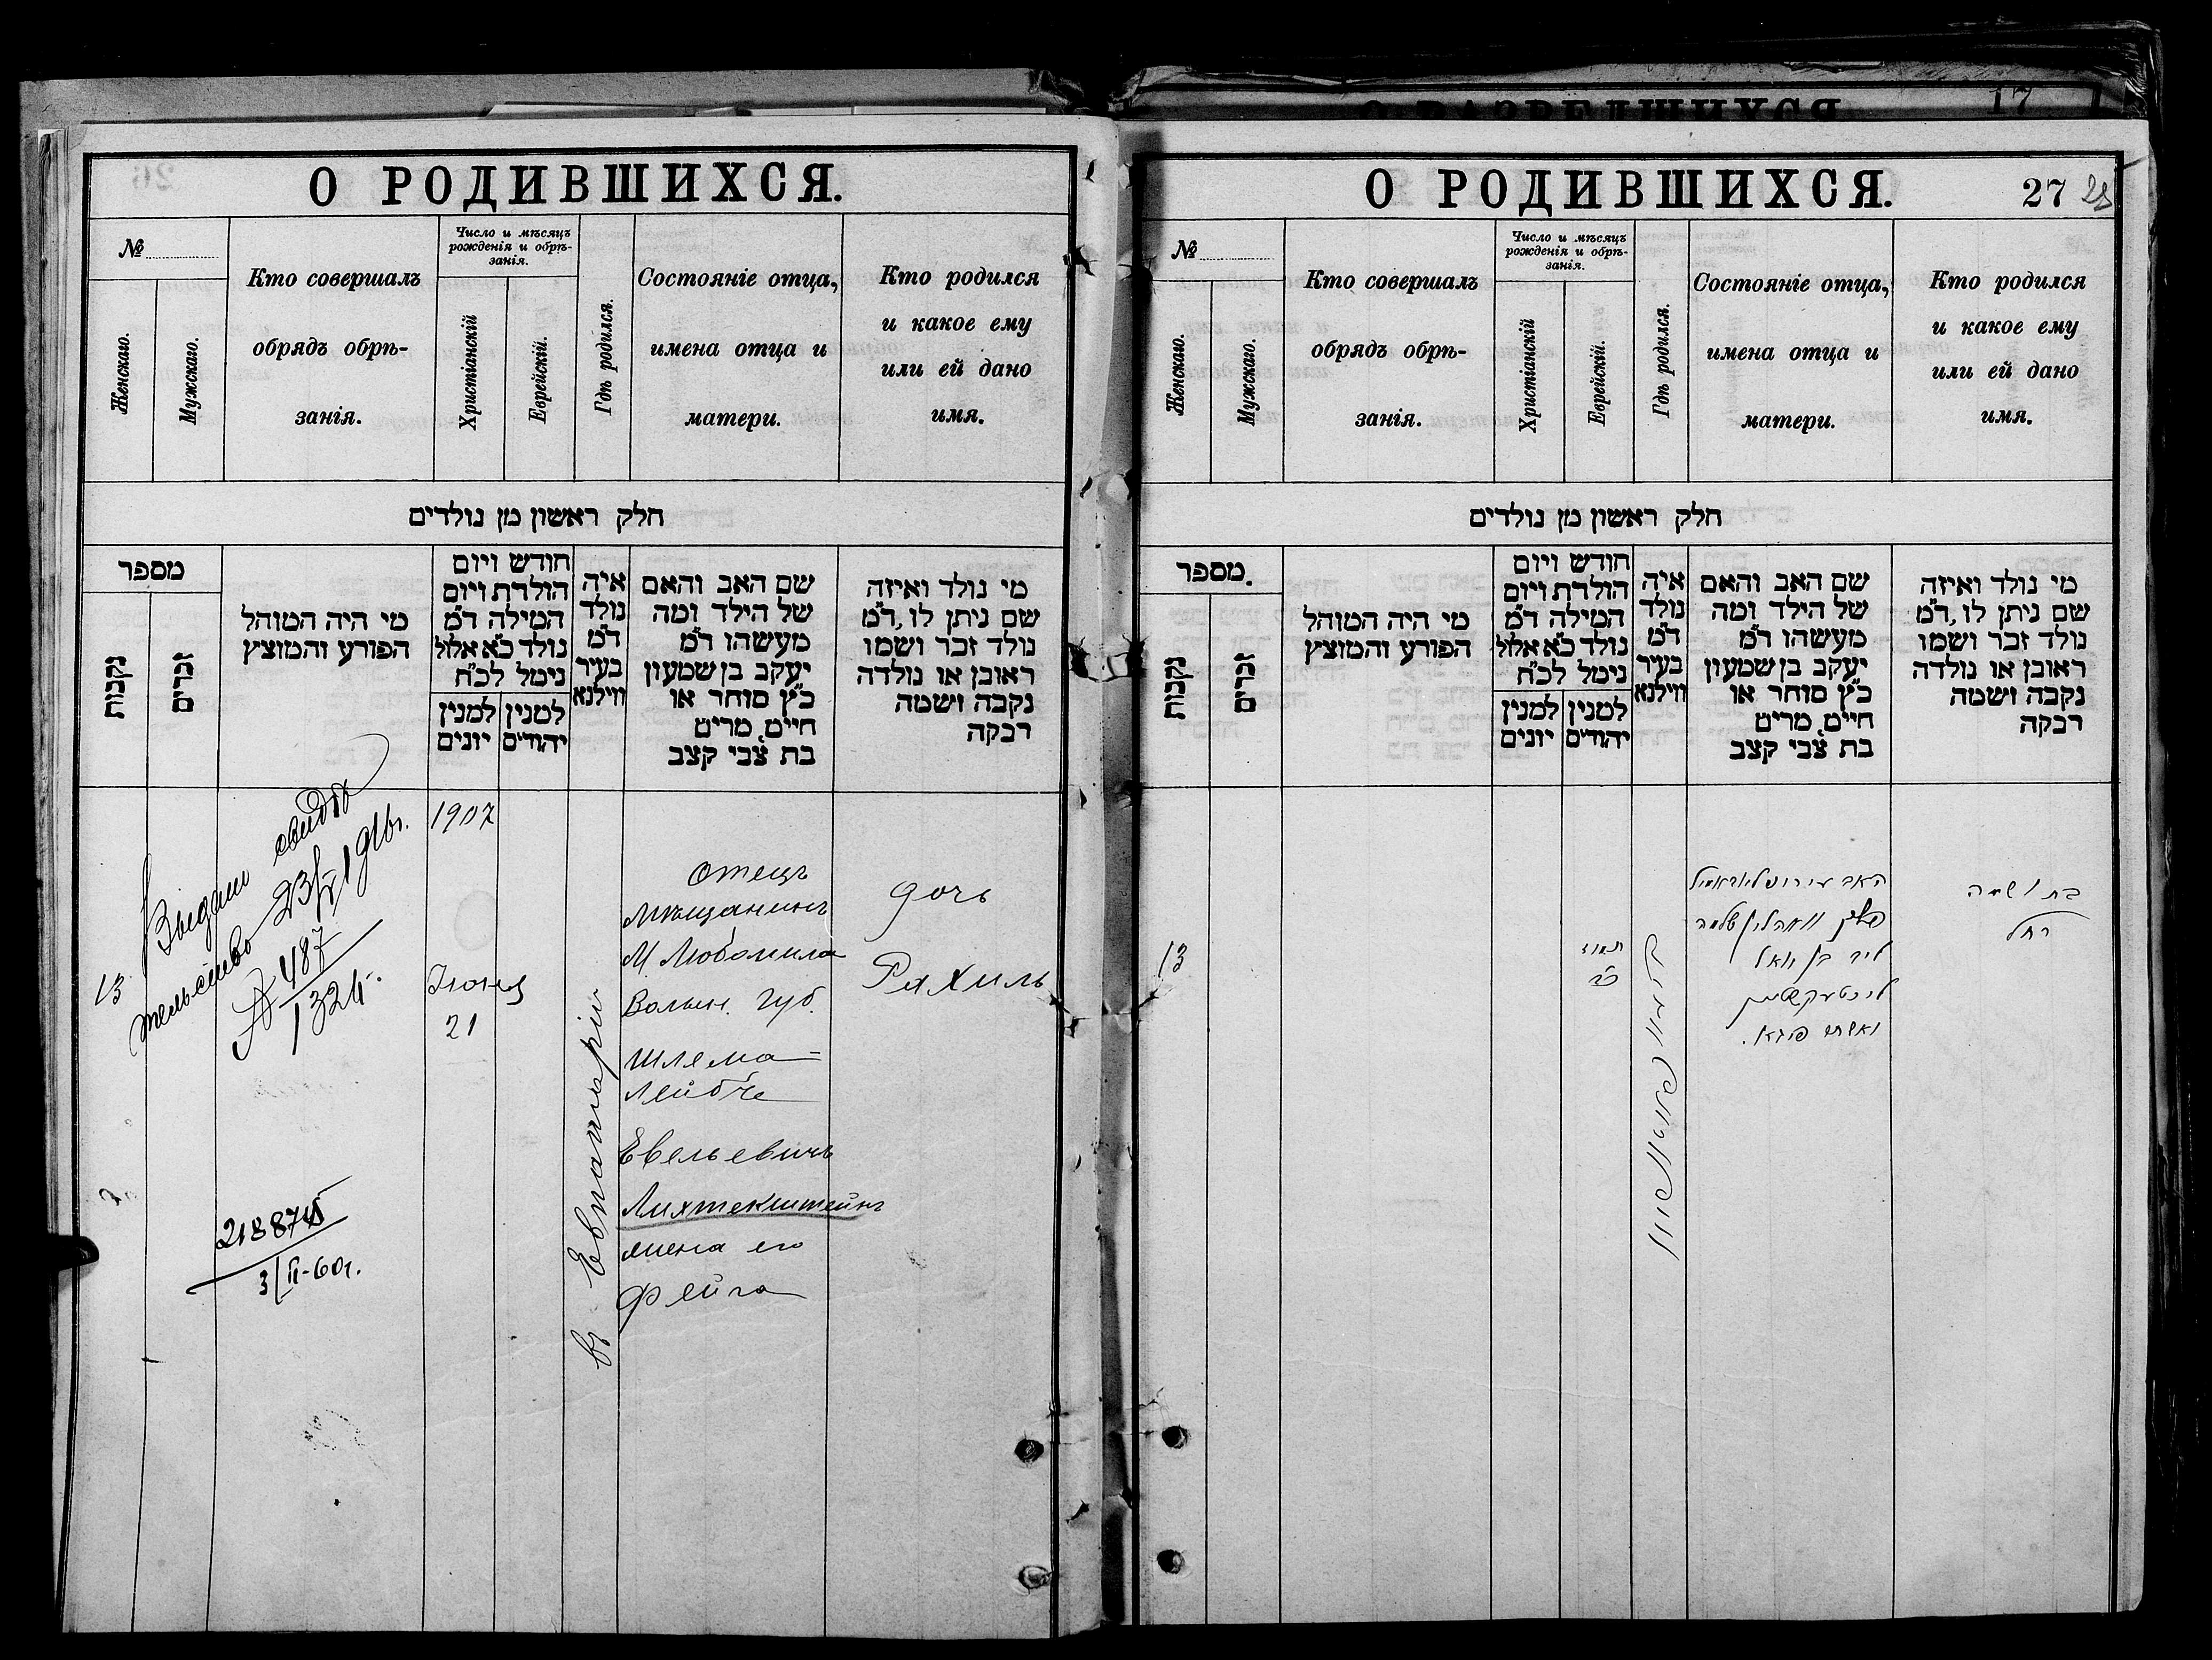 17
О РОДИВШИХСЯ.
№
Женскаго.
Мужскаго.
Кто совершалъ
обрядъ обрѣ-
занія.
Число и мѣсяцъ
рожденія и обрѣ-
занія.
Христіанскій
Еврейскій.
Гдѣ родился.
Состояніе отца,
имена отца и
матери.
Кто родился
и какое ему
или ей дано
имя.
חלק ראשון מן נולדים
מספר
נקבות
זכרים
מי היה המוהל
הפורע והמוצץ
חודש ויום
הולדת ויום
המילה ד״מ
נולד כ״א אלול
נימל לכ״ח
למנין
יונים
למנין
יהודים
איה
נולד
ד״מ
בעיר
ווילנא
שם האב והאם
של הילד ומה
מעשהו ד״מ
יעקב בן שמעון
כ״ץ סוחר או
חיים, מרים
בת צבי קצב
מי נולד ואיזה
שם ניתן לו, ד״מ
נולד זכר ושמו
ראובן או נולדה
נקבה ושמה
רבקה
13
Выдано свидѣ
тельство 23/ 1916г.
№ 487
1324.
218874
3/II-60г.
1907
Іюня
21
въ Евпаторіи
Отецъ
Мѣщанинъ
М. Любомила
Волын. губ.
Шлема-
Лейбъ
Евельевичъ
Лихтенштейнъ
жена его
Фейга
дочь
Рахиль
О РОДИВШИХСЯ.
27
28
№
Женскаго.
Мужскаго.
Кто совершалъ
обрядъ обрѣ-
занія.
Число и мѣсяцъ
рожденія и обрѣ-
занія.
Христіанскій
Еврейскій.
Гдѣ родился.
Состояніе отца,
имена отца и
матери.
Кто родился
и какое ему
или ей дано
имя.
חלק ראשון מן נולדים
מספר.
נקבות
זכרים
מי היה המוהל
הפורע והמוצץ
חודש ויום
הולדת ויום
המילה ד״מ
נולד כ״א אלול
נימל לכ״ח
למנין
יונים
למנין
יהודים
איה
נולד
ד״מ
בעיר
ווילנא
שם האב והאם
של הילד ומה
מעשהו ד״מ
יעקב בן שמעון
כ״ץ סוחר או
חיים, מרים
בת צבי קצב
מי נולד ואיזה
שם ניתן לו, ד״מ
נולד זכר ושמו
ראובן או נולדה
נקבה ושמה
רבקה
13
תמוז
האב
וואהלין שלמה
ליב בן
ליכטענקשטיין
ואשתו פיגא.
בת ושמה
רחל